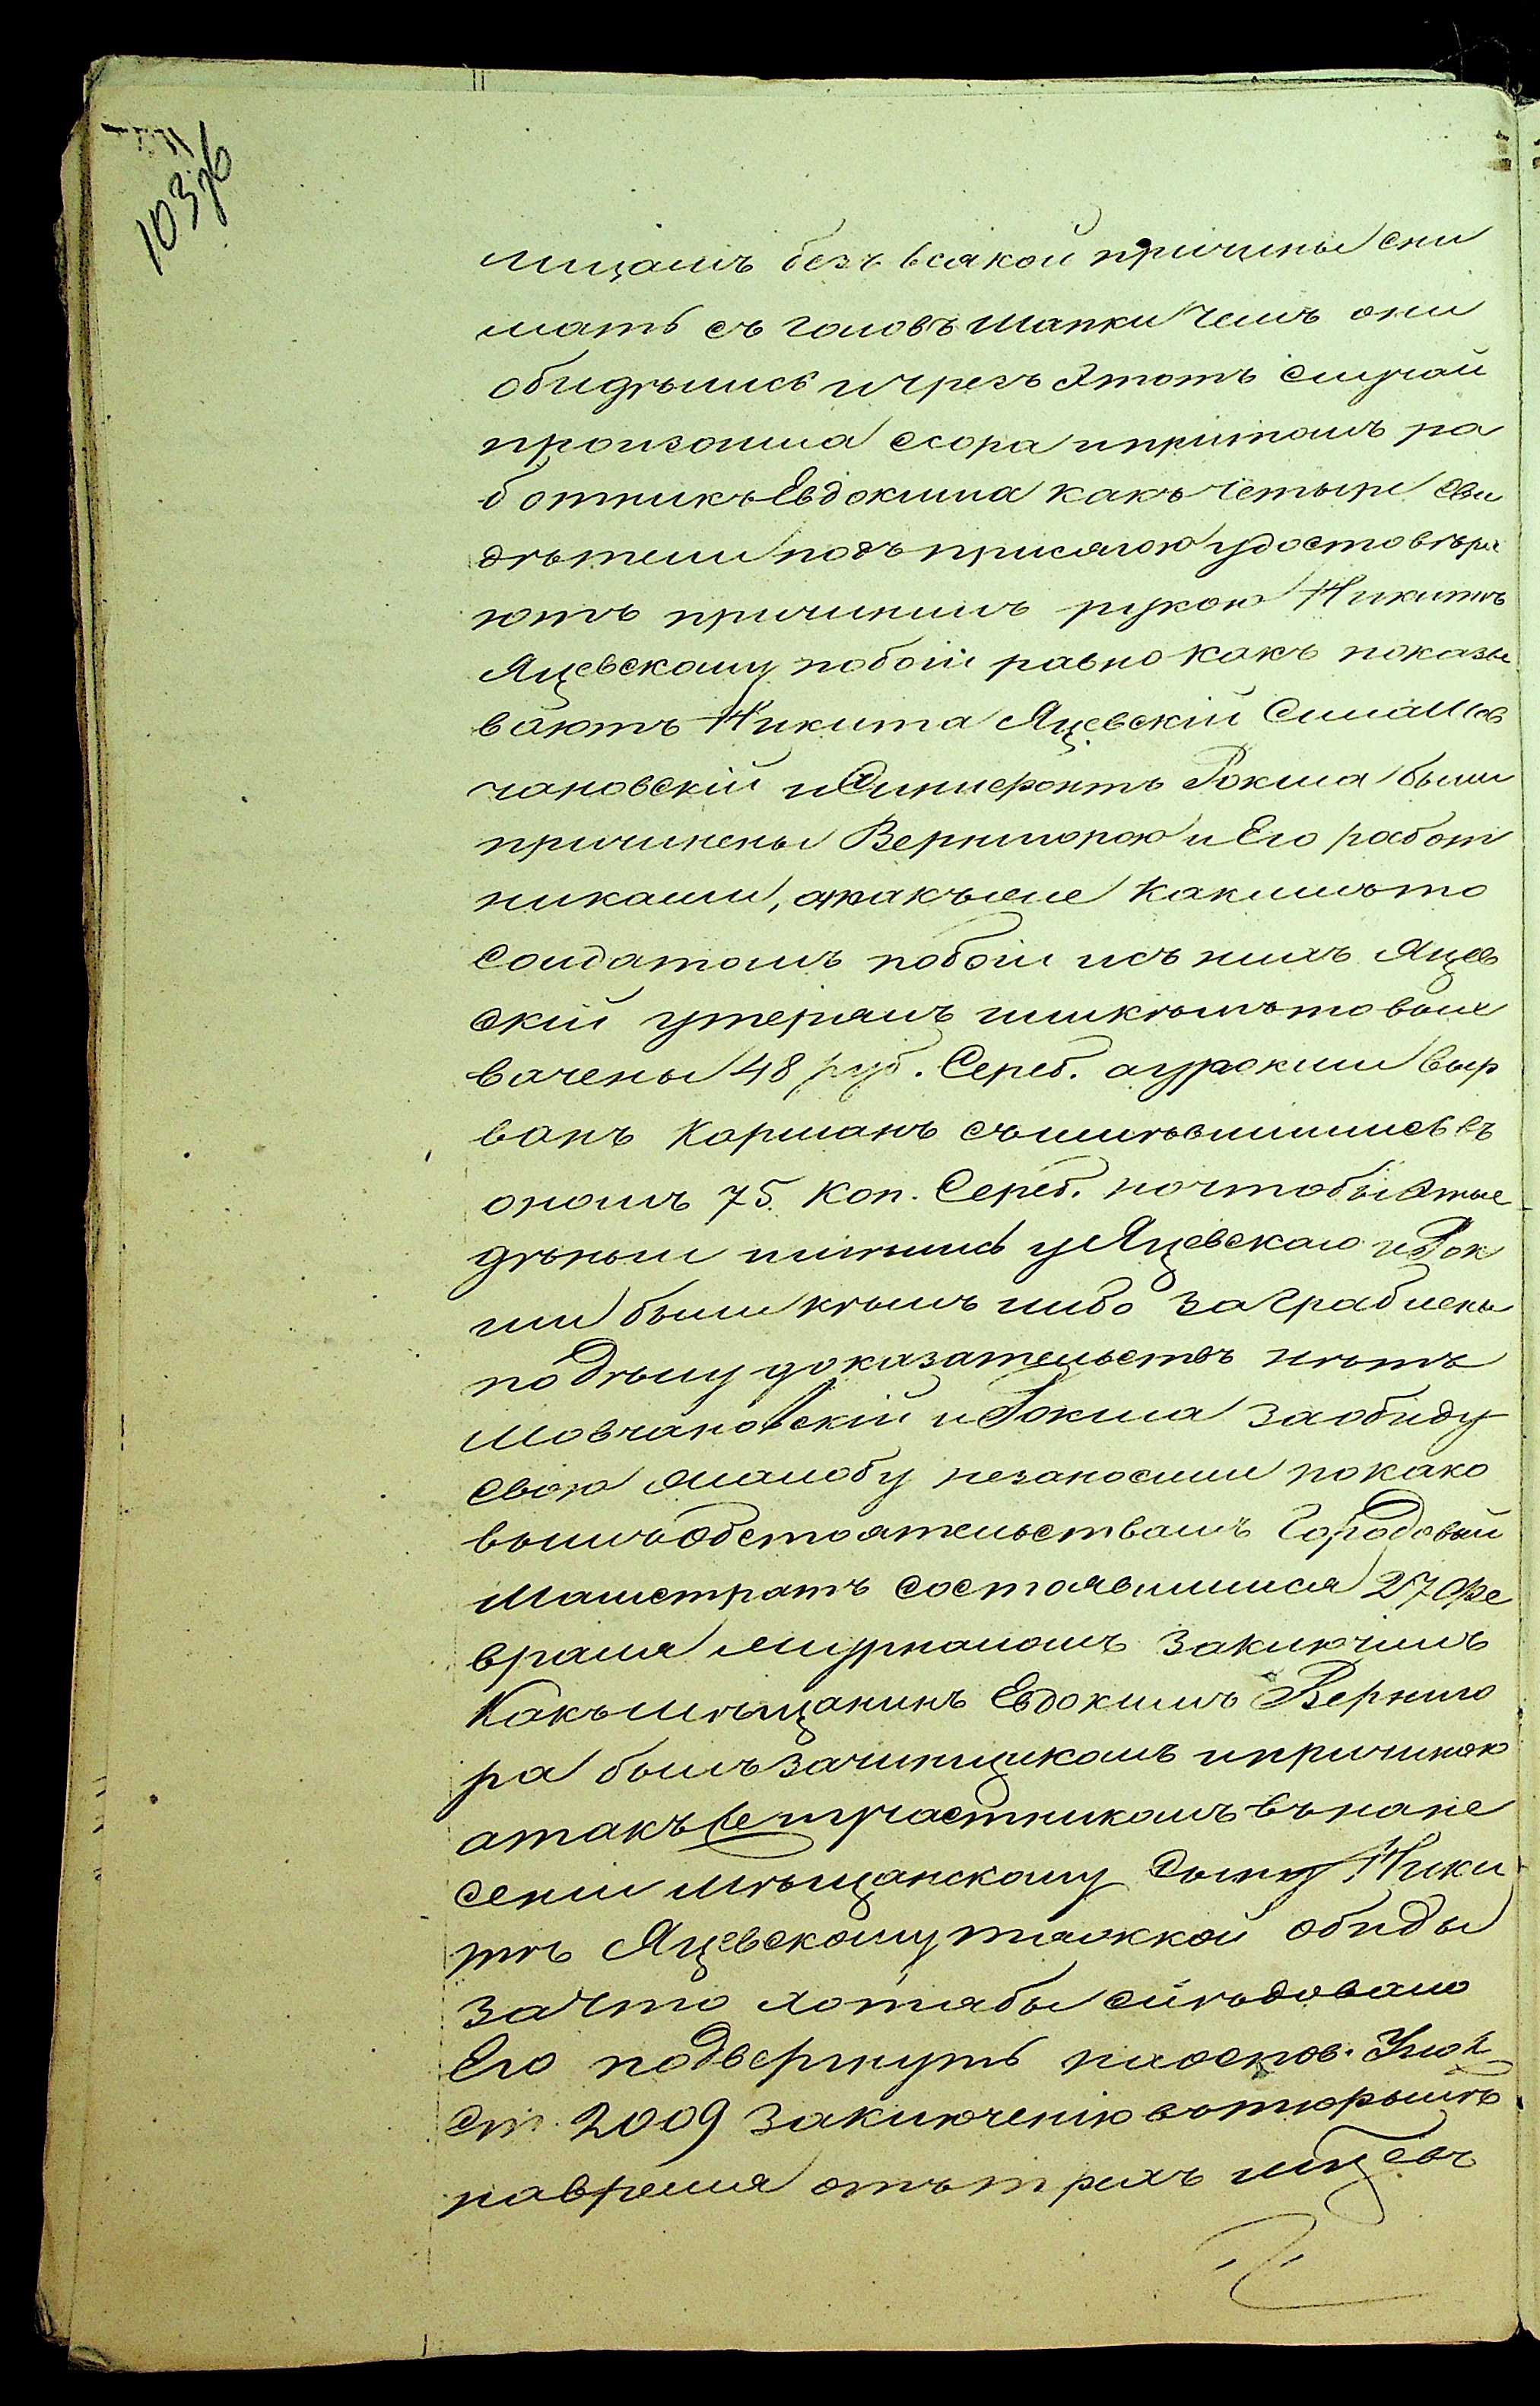 103 зб
лицамъ безъ всякой причины сни
мать съ головъ шапки чемъ они
обидѣлись и чрезъ этотъ случай
произошла ссора и притомъ ра
ботникъ Евдокима какъ четыре сви
дѣтели подъ присягою удостовѣря
ютъ причинилъ рукою Никитѣ
Яцевскому побои равно какъ показы
ваютъ Никита Яцевскій
чановскій и Рокша были
причинены Вернигорою и Его работ
никами, а также какимъ то
солдатомъ побои и съ нихъ Яцев
скій утерялъ или кѣмъ то вых
вачены 48 руб. Сереб. а у Рокши выр
ванъ карманъ съ имѣвшимися въ
ономъ 75. коп. Сереб. но чтобы этые
деньги имѣлись у Яцевскаго и Рок
ши были кѣмъ либо заграблены
по дѣлу доказательствъ нѣтъ
Мовчановскій и Рокша за обиду
свою жалобу незаносили по како
вымъ обстоятельствамъ Городовый
Магистратъ состоявшимся 27 Фе
враля журналомъ заключилъ
Какъ мѣщанинъ Евдокимъ Верниго
ра былъ зачинщикомъ и причиною
а такъ же и участникомъ въ нане
сеніи мѣщанскому сыну Ники
тѣ Яцевскому тяжкой обиды
За что хотябы слѣдовало
Его подвергнуть на основ. Улож.
Ст. 2009 заключенію въ тюрьмѣ
навремя отъ трехъ мѣсяцевъ